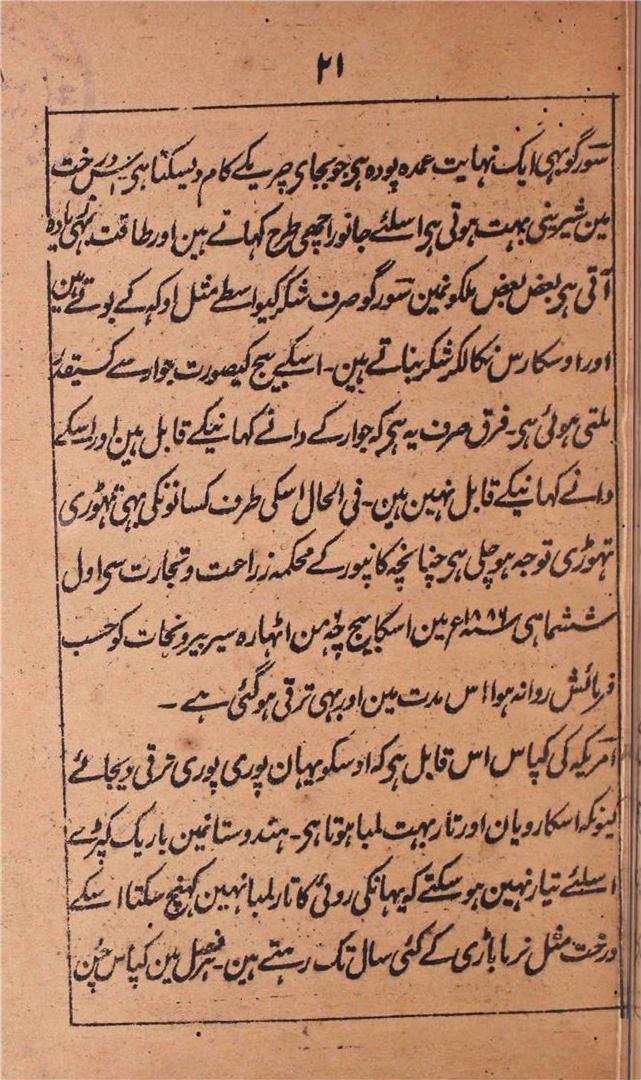 ۲۱
سورگو بھی ایک نہایت عمدہ پودہ ہی جو بجای چریکے کام دیسکتا ہی اس درخت
مین شیرینی بہت ہوتی ہی اسلئے جانور اچھی طرح کہاتے ہین اور طاقت بہی زیادہ
آتی ہی بعض بعض ملکونمین سورگو صرف شکر کیواسطے مثل اوکہہ کے بوتے ہین
اور اوسکا رس نکالکر شکر بناتے ہین۔ اسکے بیج کیصورت جوار سے کسیقدر
ملتی ہوئی ہی۔ فرق صرف یہ ہی کہ جوار کے دانے کہانیکے قابل ہین اور اسکے
دانے کہانیکے قابل نہین ہین۔ فی الحال اسکی طرف کسانونکی بہی تہوڑی
تہوڑی توجہ ہو چلی ہی چنانچہ کانپور کے محکمہ زراعت و تجارت سی اول
ششماہی سنہ ۱۸۸۶ع مین اسکا بیج چھہ من اٹہارہ سیر بیرونجات کو حسب
فرمائش روانہ ہوا اس مدت مین اور بہی ترقی ہو گئی ہے ۔
آمریکہ کی کپاس اس قابل ہی کہ اوسکو یہان پوری پوری ترقی دیجائے
کیونکہ اسکا رویان اور تار بہت لمبا ہوتا ہی۔ ہندوستانمین باریک کپڑے
اسلئے تیار نہین ہو سکتے کہ یہانکی روئی کا تار لمبا نہین کہنچ سکتا اسکے
درخت مثل نرما باڑی کے کئی سال تک رہتے ہین۔ ہر فصل مین کپاس چُن